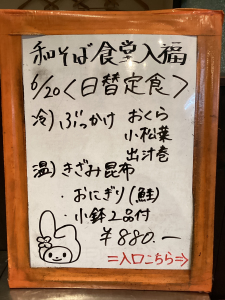 和そば食堂入福
6/20<日替定食>
冷)ぶっかけ おくら
小松菜
出汁巻
温)きざみ昆布
・おにぎり(鮭)
・小鉢2品付
¥880.ー
=入口こちら⇒